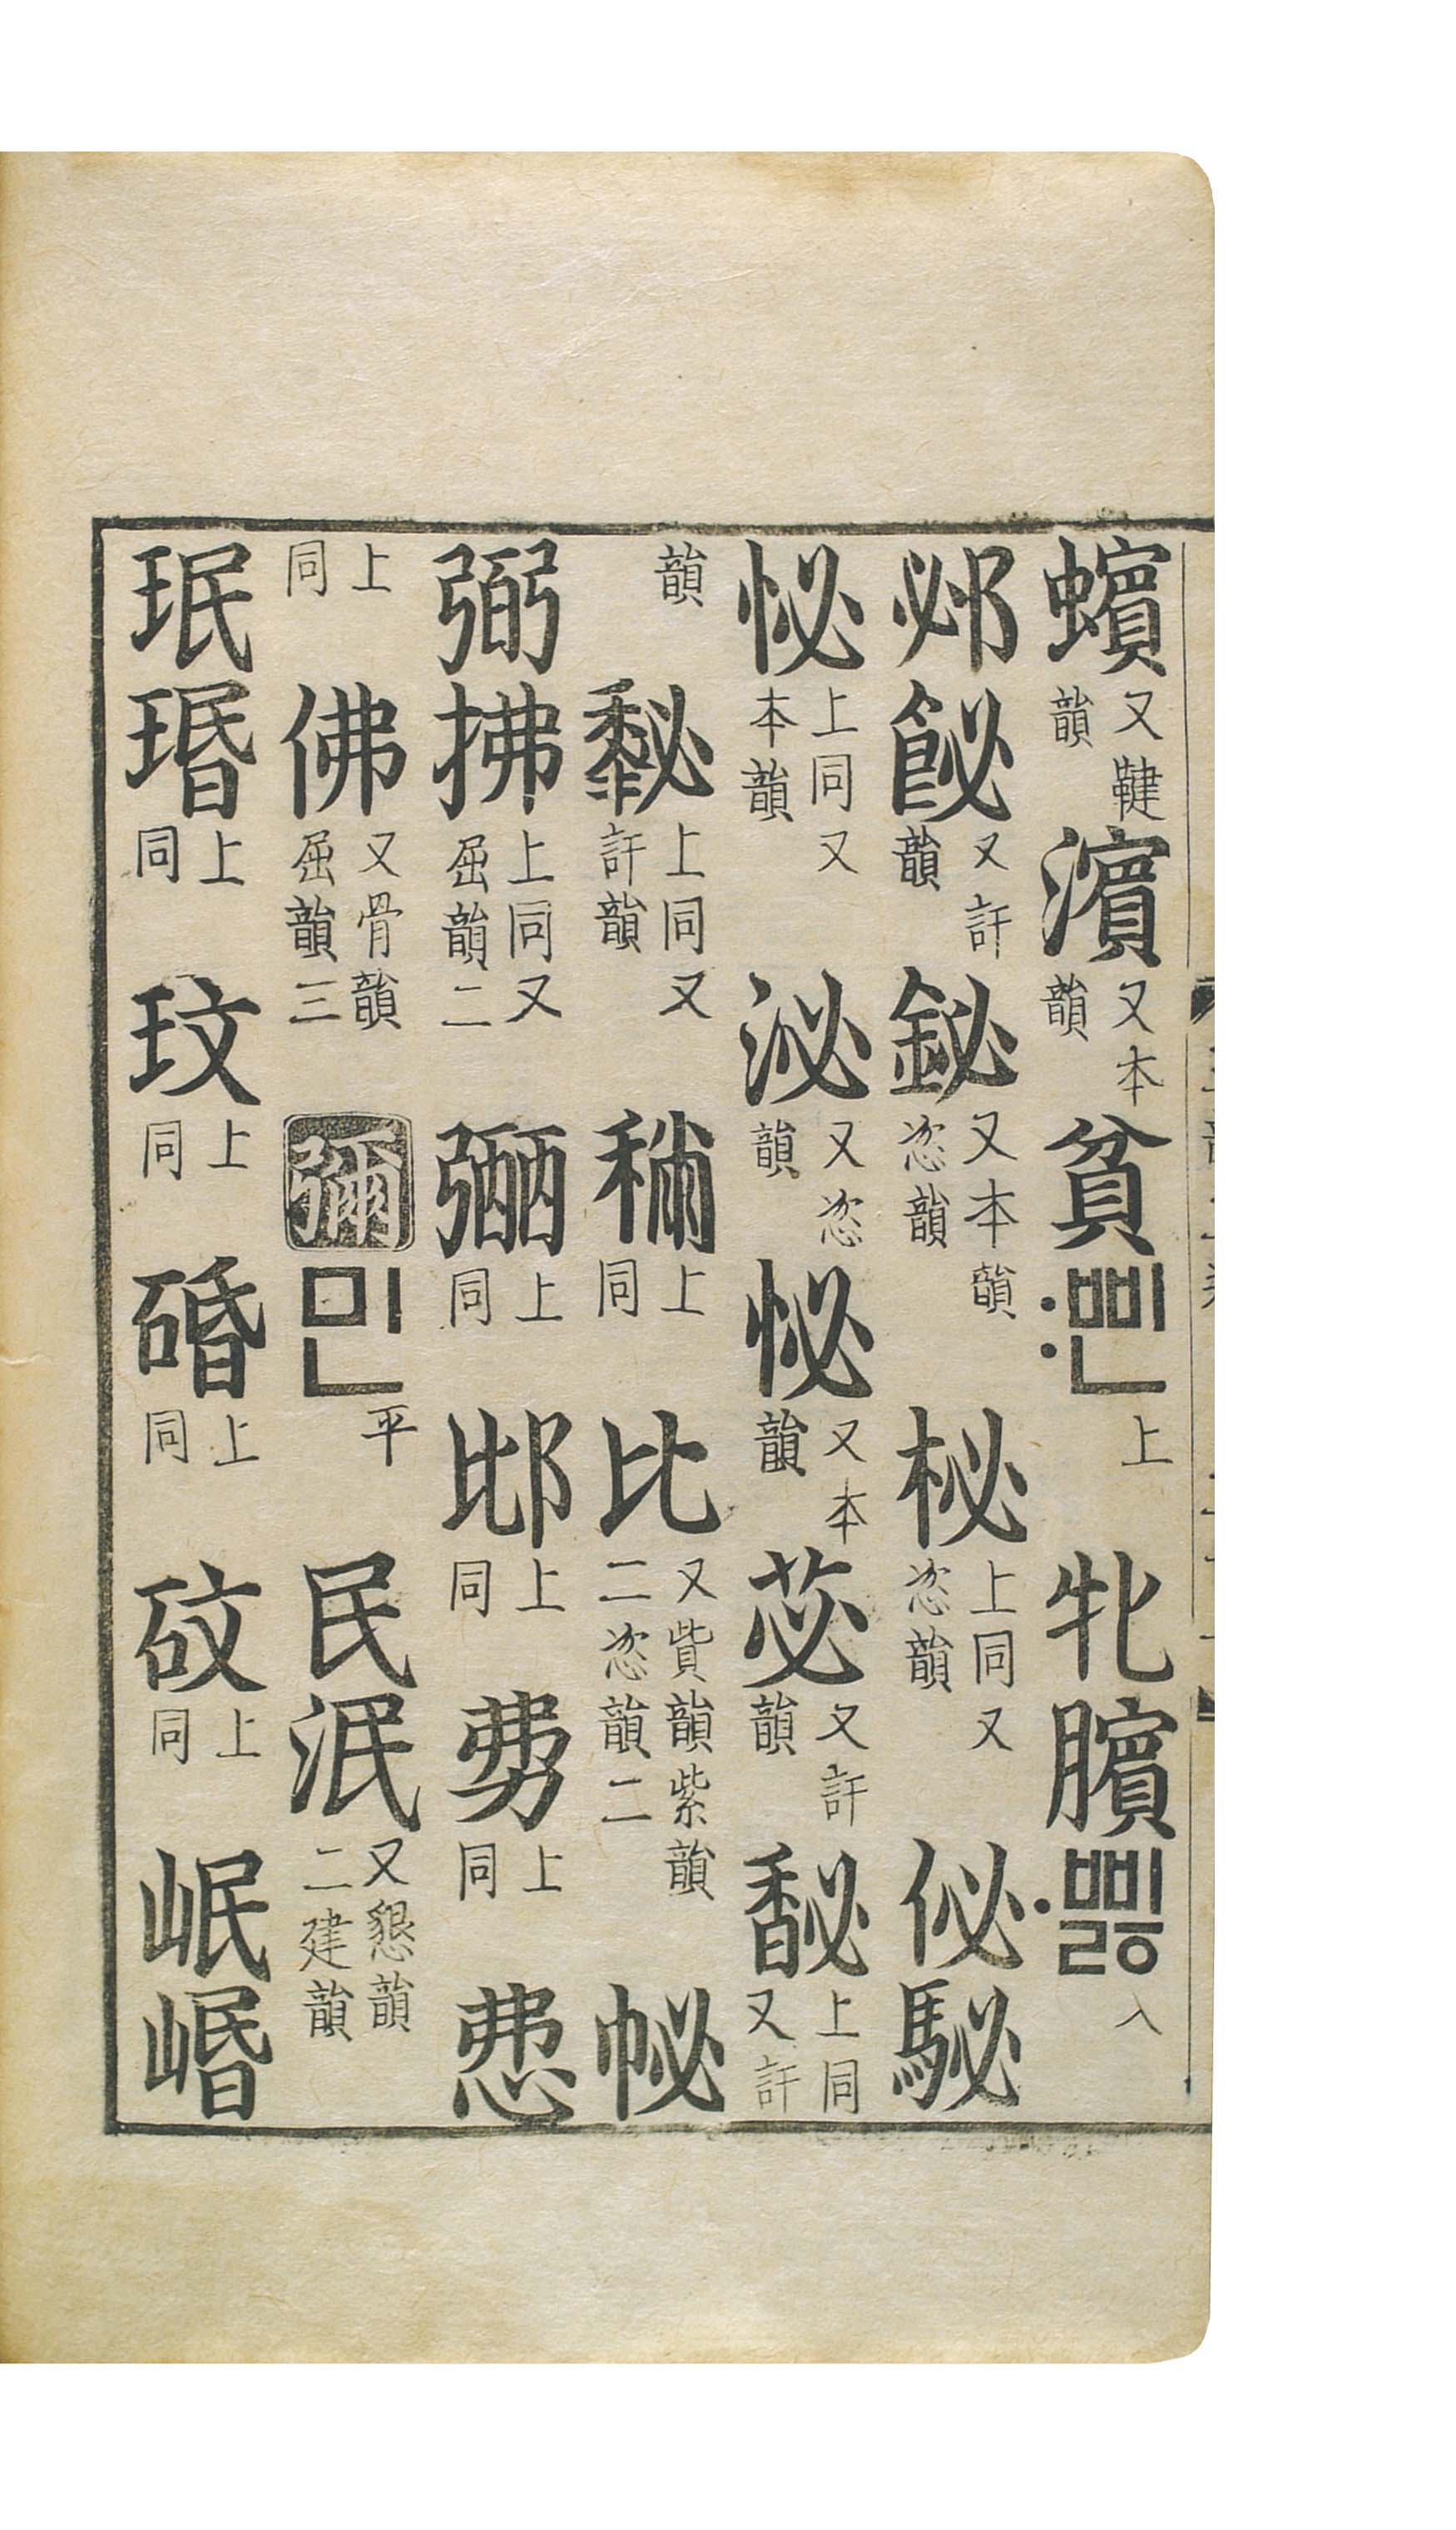 蠙又鞬韻濵又本韻貧〯삔上牝臏〮삥入
邲飶又訐韻鉍又本韻恣韻柲上同又恣韻佖駜
怭上同又本韻泌又恣韻怭又本韻苾又訐韻馝上同又訐
韻䅿上同又訐韻比又貲韻紫韻二恣韻二㡙
弼拂上同又屈韻二弻上同上同上同
上同佛又骨韻屈韻三彌민平民泯又懇韻二建韻
珉瑉上同玟上同碈上同砇上同岷崏